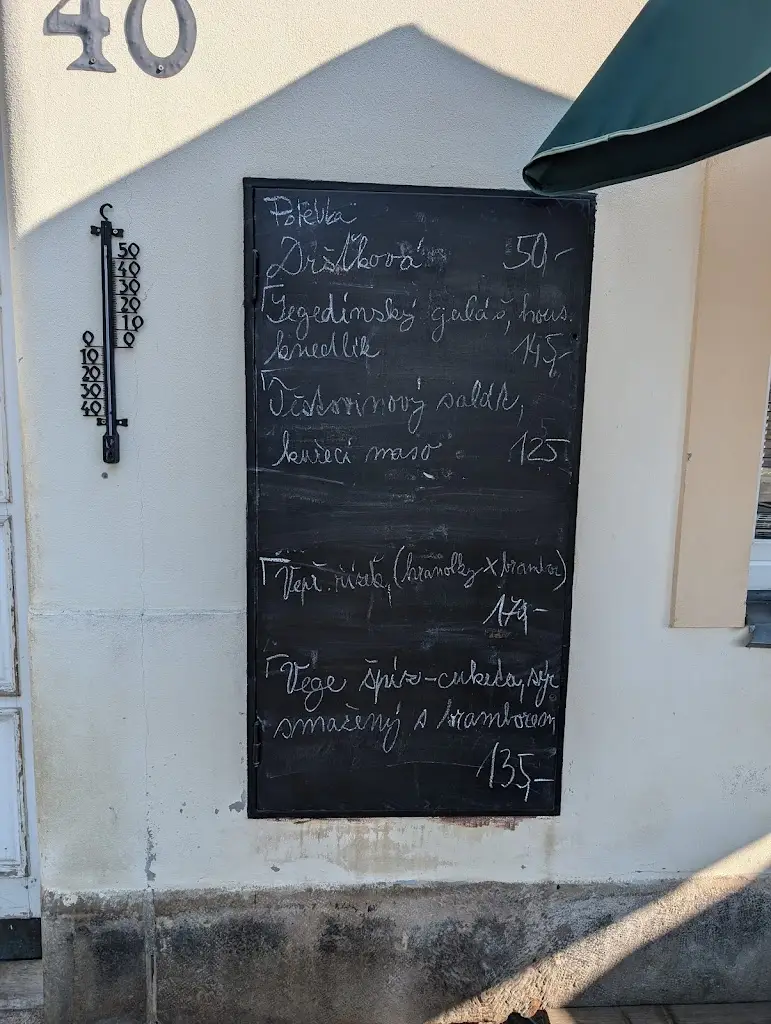 40
50
40
30
20
10
0
0
10
20
30
40
Polévka
Dršťková 50,-
Segedínský guláš, hous.
knedlík 145,-
Těstovinový salát,
kuřecí maso 125
Vepř. řízek, (hranolky x brambor)
179,-
Vege špíz-cuketa, sýr
smažený s bramborem
135,-